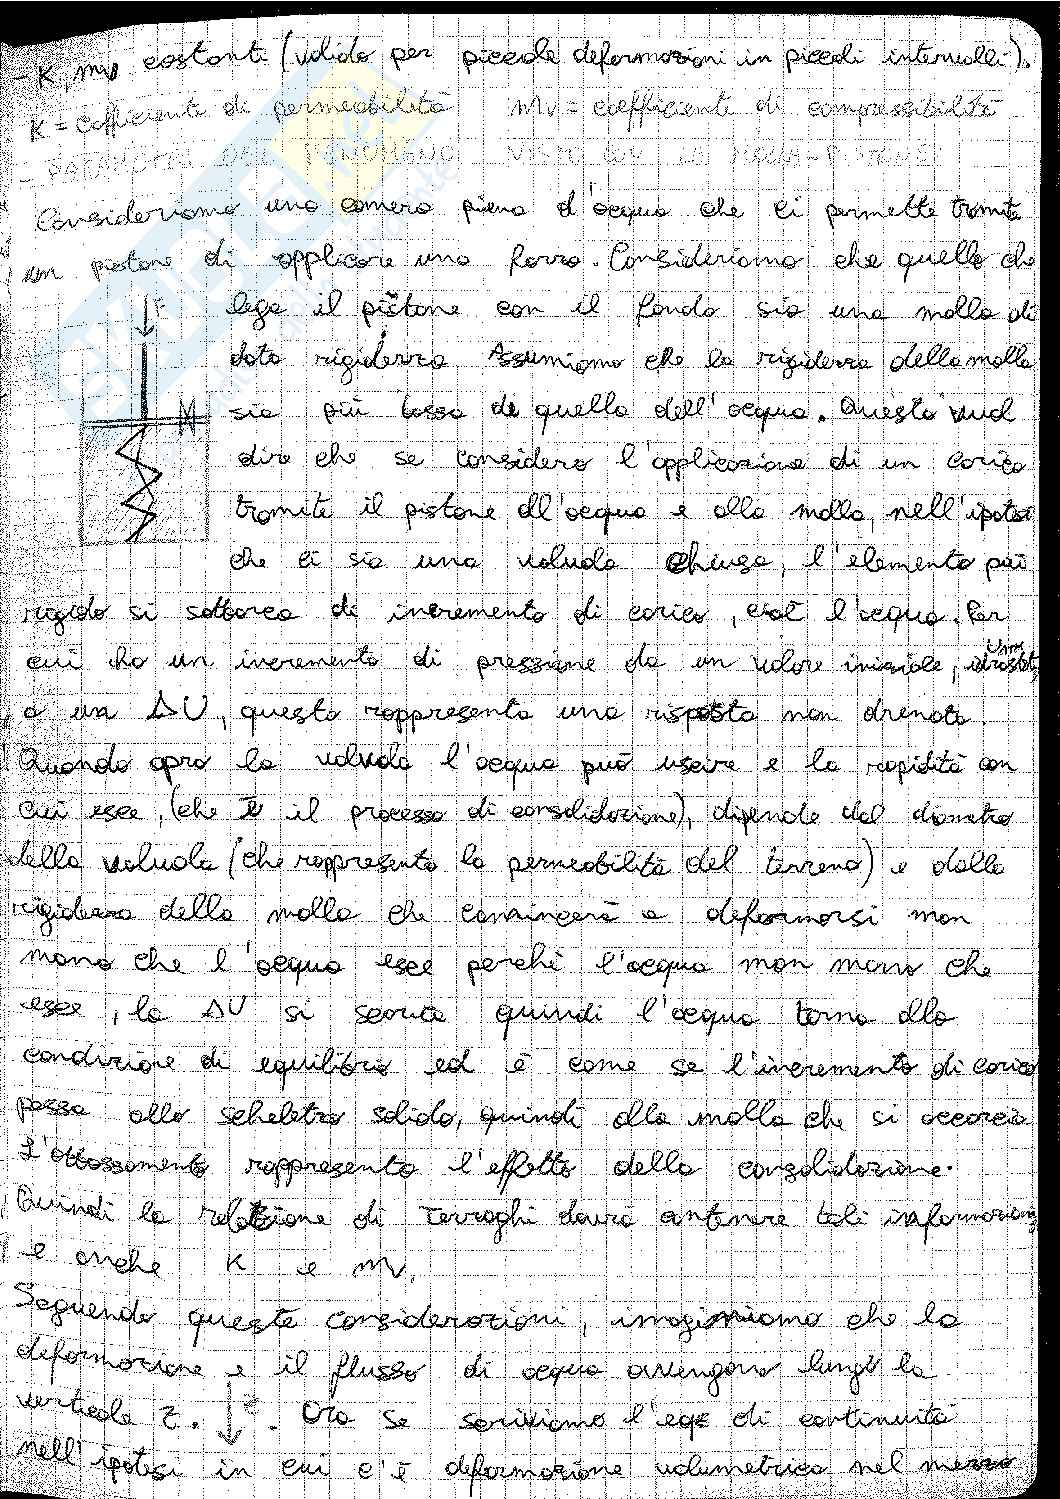 - K, mv costanti (valido per piccole deformazioni in piccoli intervalli).
K = coefficiente di permeabilità mv = coefficiente di compressibilità
- DEL FENOMENO VISTO CON LA MOLLA-PISTONE
Consideriamo una camera piena d'acqua che ci permette tramite
un pistone di applicare una forza. Consideriamo che quello che
F lega il pistone con il fondo sia una molla di
data rigidezza Assumiamo che la rigidezza della molla
sia più bassa di quella dell'acqua. Questo vuol
dire che se considero l'applicazione di un carico
tramite il pistone all'acqua e alla molla, nell'ipotesi
che ci sia una valvola chiusa, l'elemento più
rigido si sobbarca di incremento di carico, cioè l'acqua. Per
cui ho un incremento di pressione da un valore iniziale, idrost,
a un ΔU, questo rappresenta una risposta non drenata.
Quando apro la valvola l'acqua può uscire e la rapidità con
cui esce, (che è il processo di consolidazione), dipende dal diametro
della valvola (che rappresenta la permeabilità del terreno) e dalla
rigidezza della molla che comincerà a deformarsi man
mano che l'acqua esce perchè l'acqua man mano che
esce, la ΔU si scarica quindi l'acqua torna alla
condizione di equilibrio ed è come se l'incremento di carico
passa allo scheletro solido, quindi alla molla che si accorcia
L'abbassamento rappresenta l'effetto della consolidazione.
Quindi la relazione di Terzaghi dovrà ottenere tali informazioni
e anche K e mv.
Seguendo queste considerazioni, immaginiamo che la
deformazione e il flusso di acqua avvengano lungo la
verticale z. z . Ora se scriviamo l'eqz di continuità
nell'ipotesi in cui c'è deformazione volumetrica nel mezzo